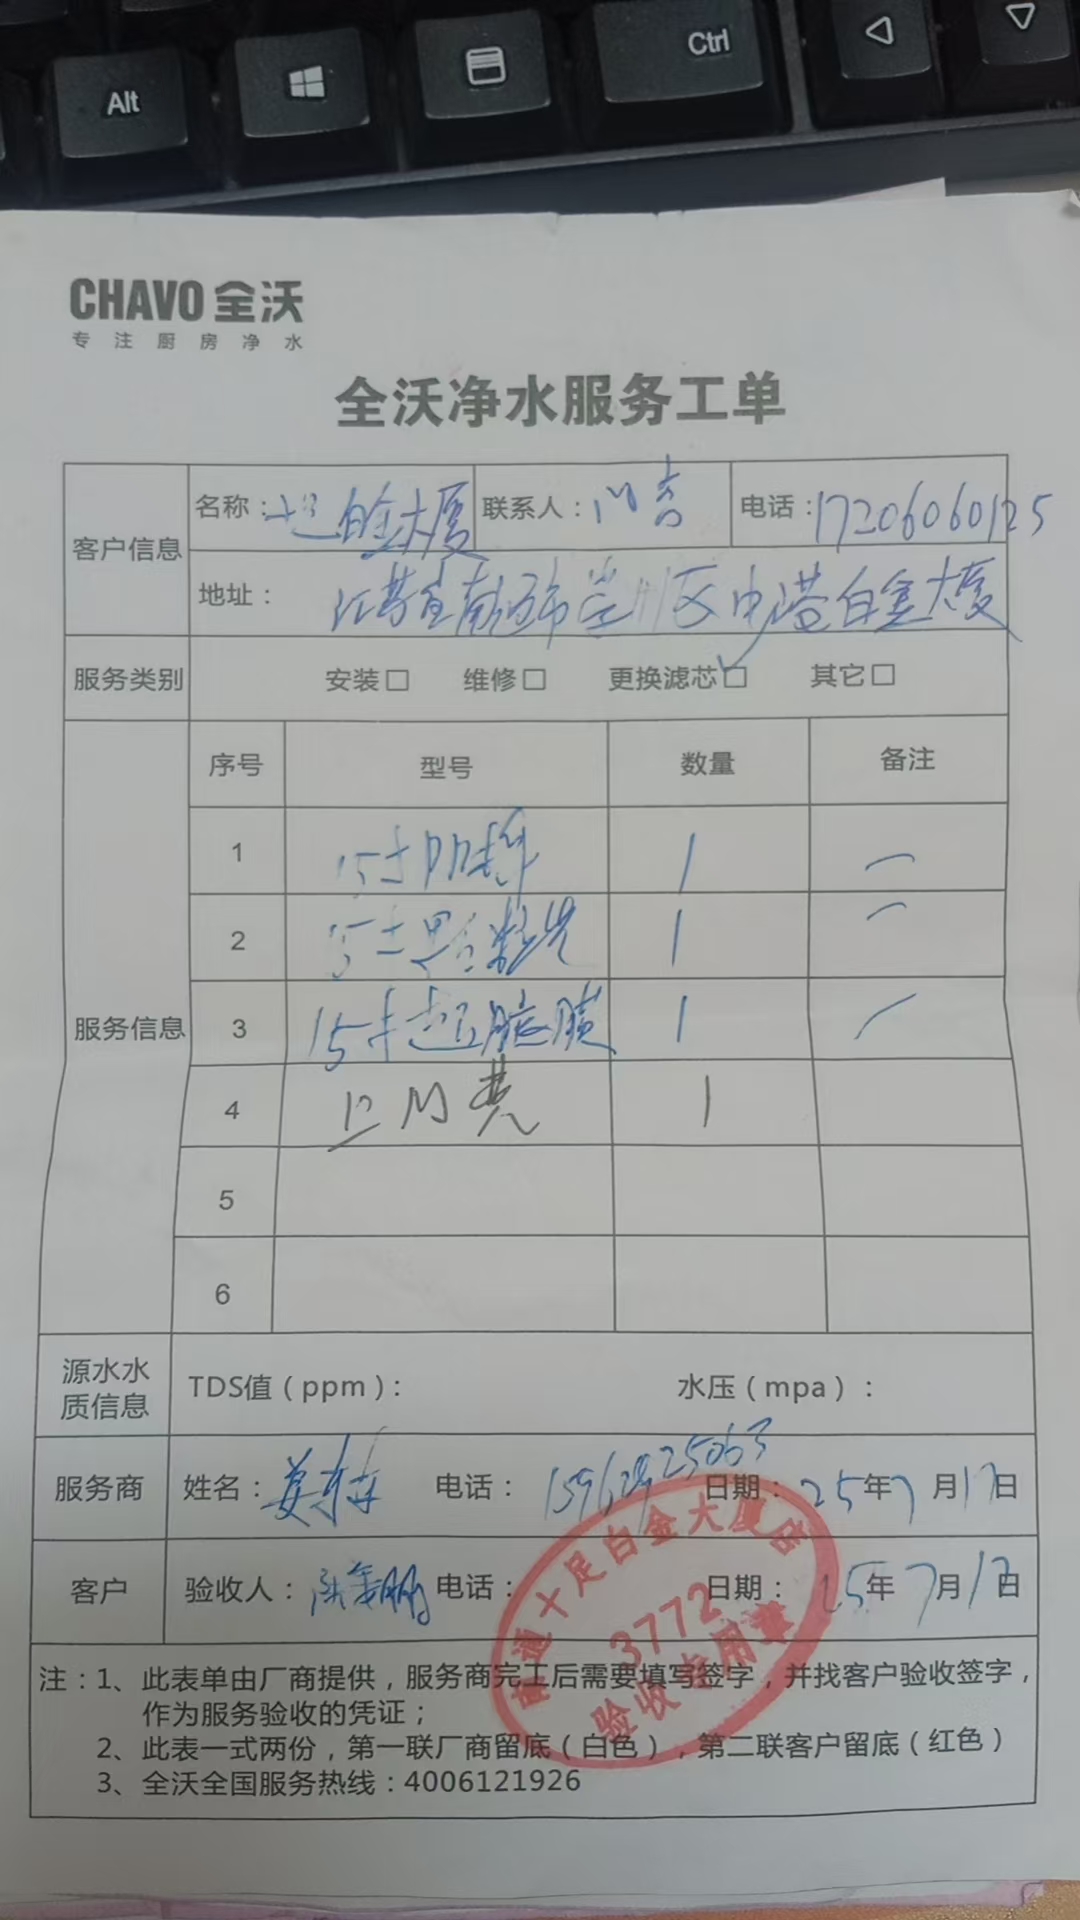 Alt
Ctrl
CHAVO 全沃
专注厨房净水
全沃净水服务工单
客户信息 名称：白金大厦 联系人：门店 电话：17206060125
地址：江苏省南通市崇川区中港白金大厦
服务类别 安装□ 维修□ 更换滤芯☑ 其它□
服务信息 序号 型号 数量 备注
1 15寸PP棉 1 一
2 15寸颗粒炭 1 一
3 15寸超滤膜 1 一
4 上门费 1
5
6
源水水质信息 TDS值（ppm）： 水压（mpa）：
服务商 姓名：姜 电话：15962925063 日期：25年7月17日
客户 验收人： 电话： 日期：25年7月17日
南通十足白金大厦店
3772
验收专用章
注：1、此表单由厂商提供，服务商完工后需要填写签字，并找客户验收签字，
作为服务验收的凭证；
2、此表一式两份，第一联厂商留底（白色），第二联客户留底（红色）
3、全沃全国服务热线：4006121926